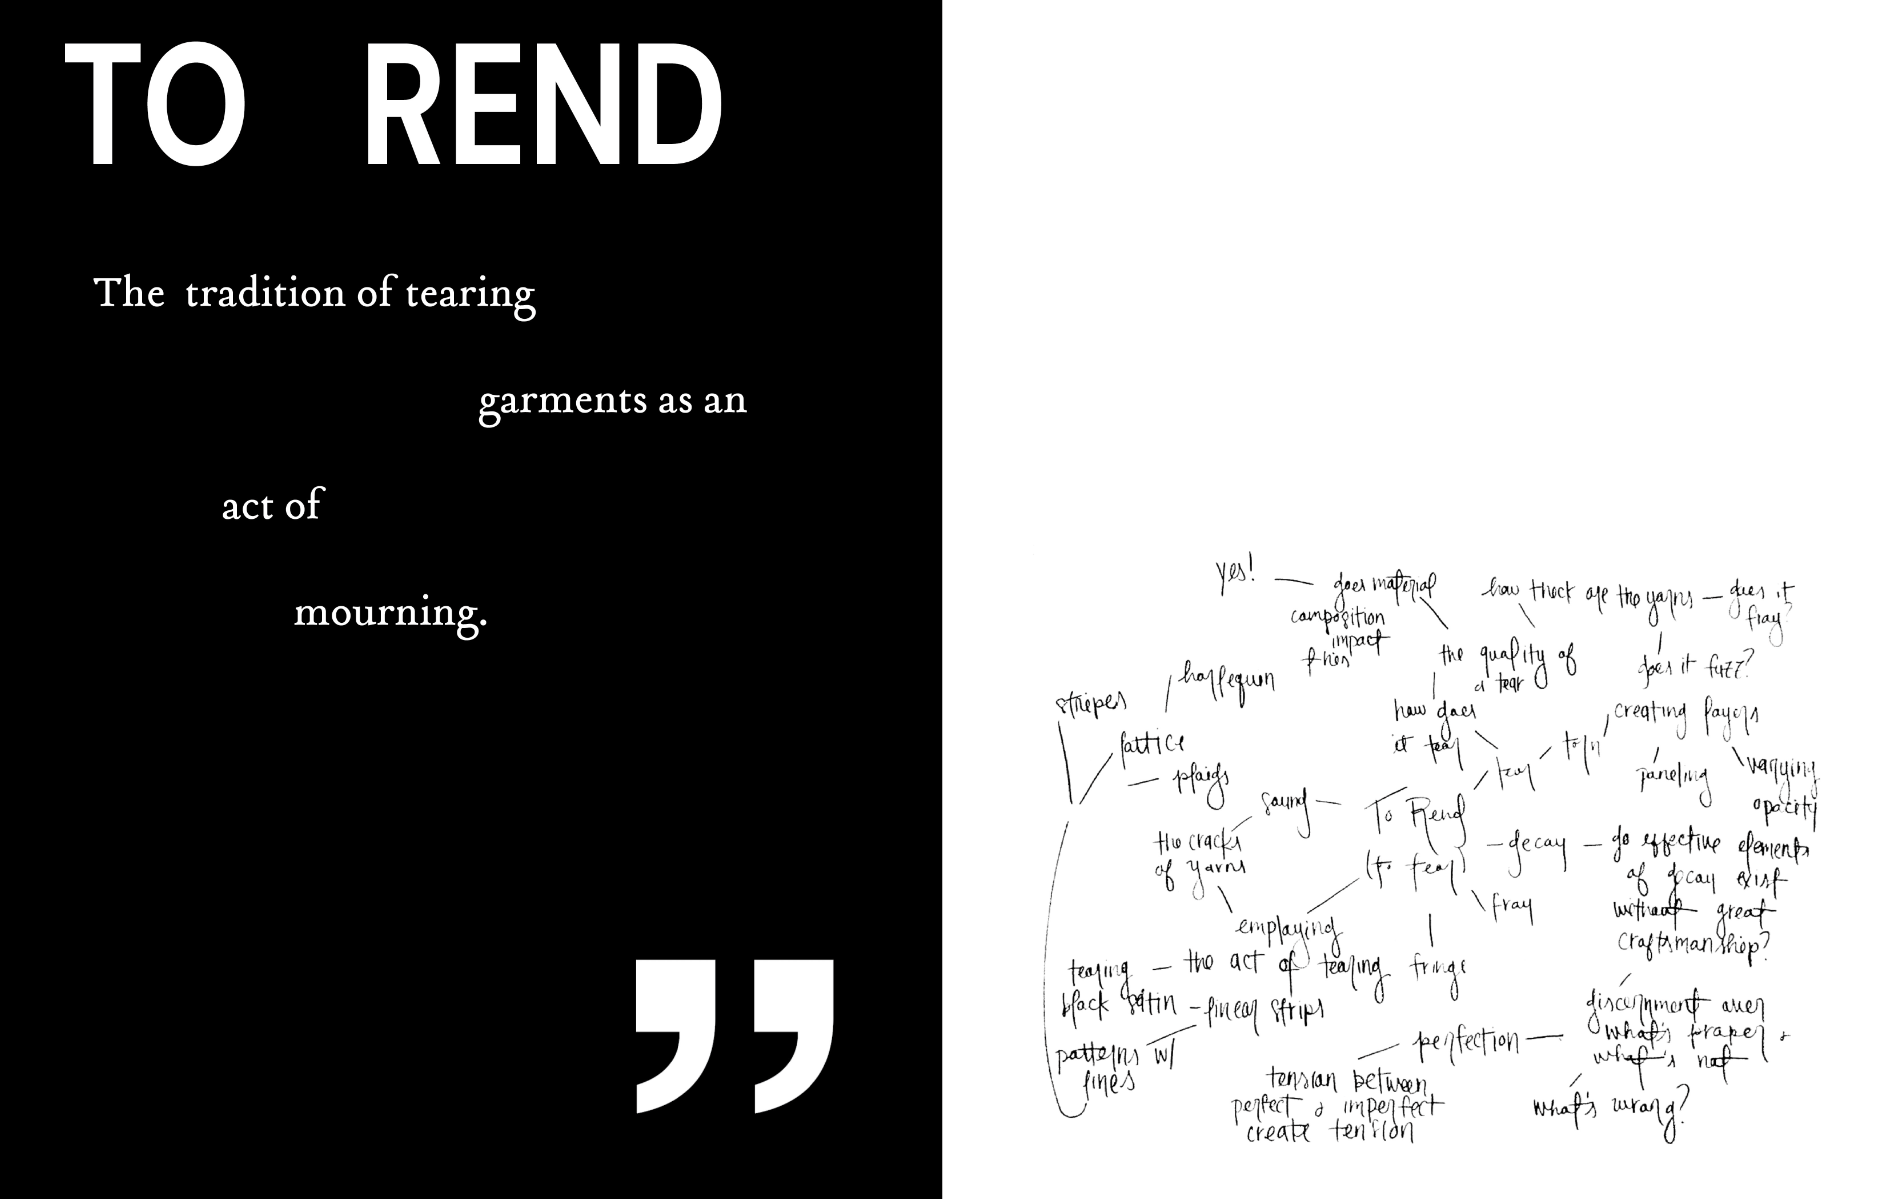 TO REND
The tradition of tearing
garments as an
act of
mourning.
”
yes!
does material
composition
impact
this
how thick are the yarns
does it
fray?
the quality of
a tear
does it fuzz?
harlequin
stripes
lattice
plaids
how does
it tear
tear
torn
creating layers
paneling
varying
opacity
sound
To Rend
(to tear)
the cracks
of yarns
decay
do effective elements
of decay exist
without great
craftsmanship?
fray
employing
tearing
the act of tearing
fringe
black satin
linear strips
patterns w/
lines
perfection
discernment over
what's proper &
what's not
what's wrong?
tension between
perfect & imperfect
create tension